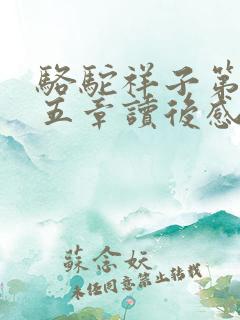 駱駝祥子第
五章讀後感
蘇念妖
未經同意禁止轉載